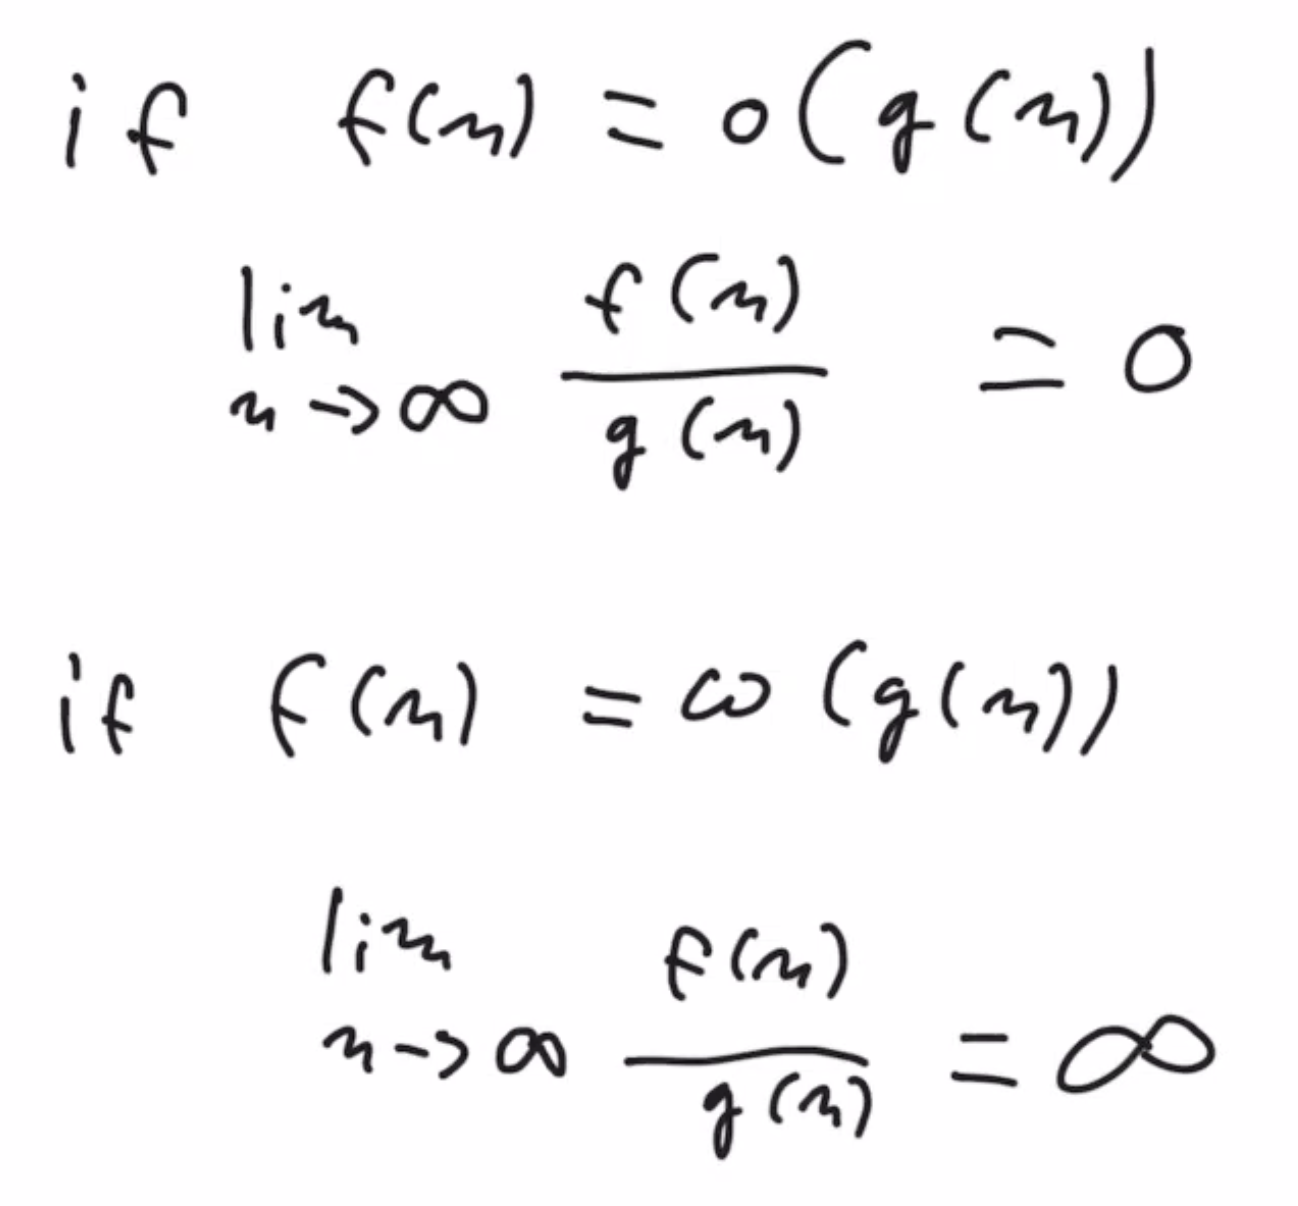 if f(n) = o(g(n))
lim n→∞ f(n)/g(n) = 0
if f(n) = ω(g(n))
lim n→∞ f(n)/g(n) = ∞